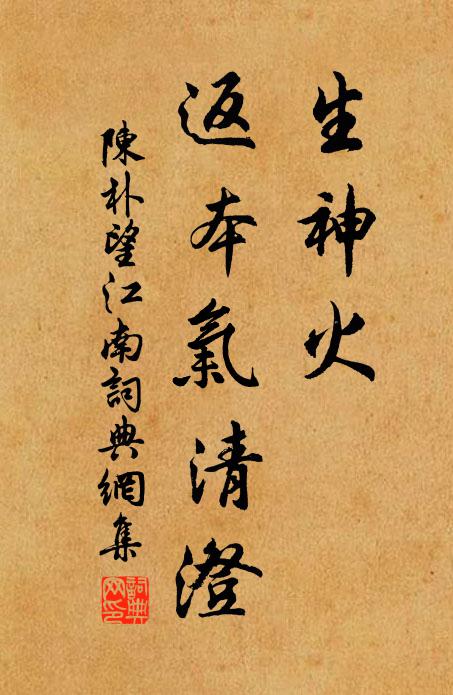 生神火
返本氣清澄
陳朴望江南詞典網集
詞典網印